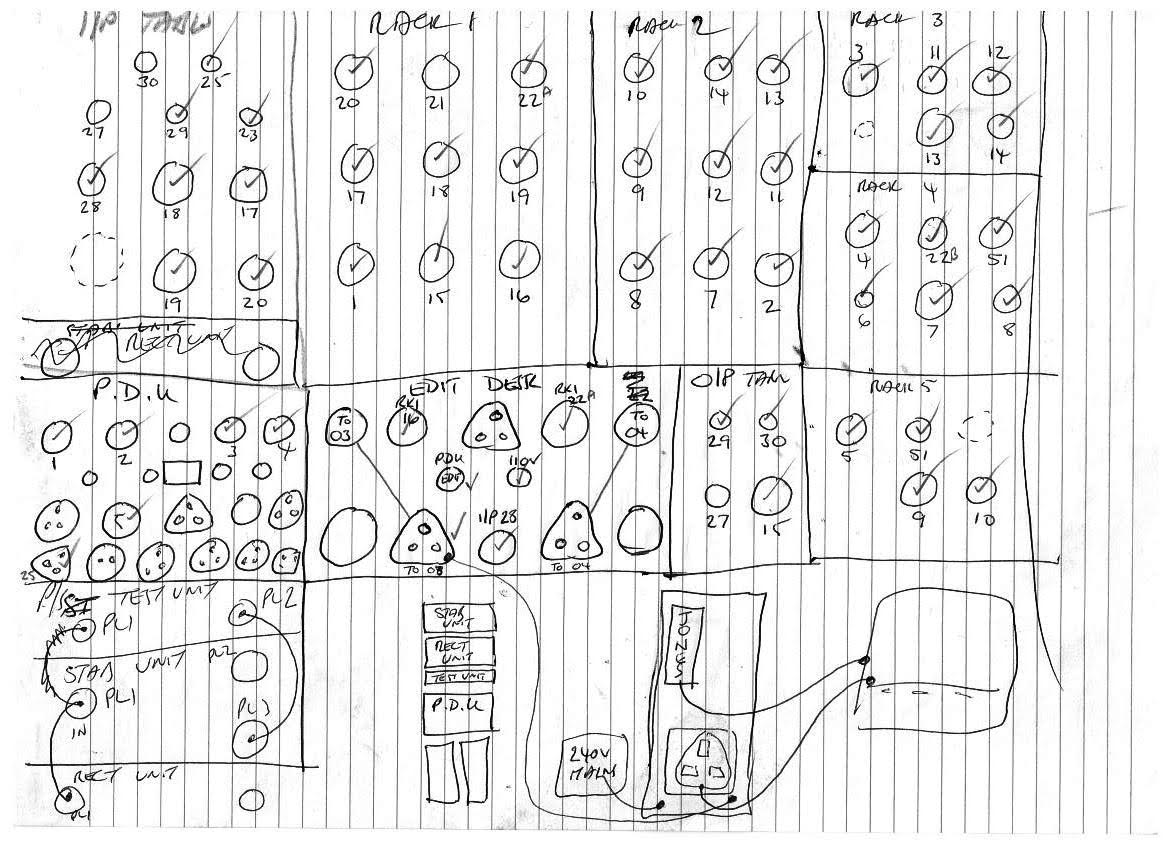 I/P TANK
30 25
27 29 23
28 18 17
19 20
STAB UNIT
RECT UNIT
RACK 1
20 21 22A
17 18 19
1 15 16
RACK 2
10 14 13
9 12 11
8 7 2
RACK 3
3 11 12
13 14
RACK 4
4 22B 51
6 7 8
P.D.U
1 2 3 4
5
25
EDIT DESK
TO 03
RK1 16
RK1 22A
TO 04
PDU EDIT
110V
I/P 28
TO 03
TO 04
O/P TANK
29 30
27 15
RACK 5
5 51
9 10
TEST UNIT
PL1 PL2
STAB UNIT PL2
PL1
IN
PL3
RECT UNIT
PL1
STAB UNIT
RECT UNIT
TEST UNIT
P.D.U
240V MAINS
JONES